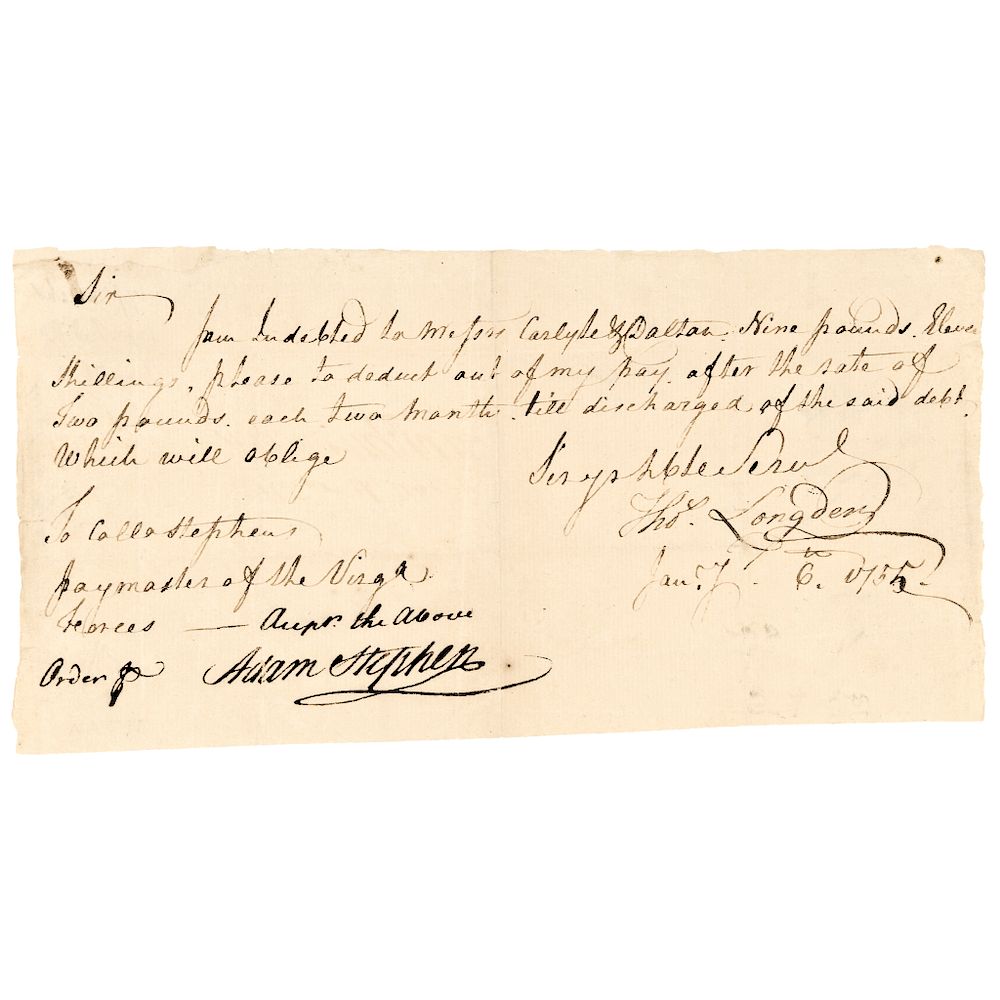 Sir
I am Indebted to Messrs Carlyle & Dalton Nine pounds. Eleven
Shillings, please to deduct out of my pay after the rate of
Two pounds. each two Month. till discharged of the said debt.
Which will oblige
Sir yr Hble Servt
Thos. Longden
Janry. 6th. 1755.
To Collo Stephens
paymaster of the Virga
Forces — Accpt. the Above
Order pr Adam Stephen